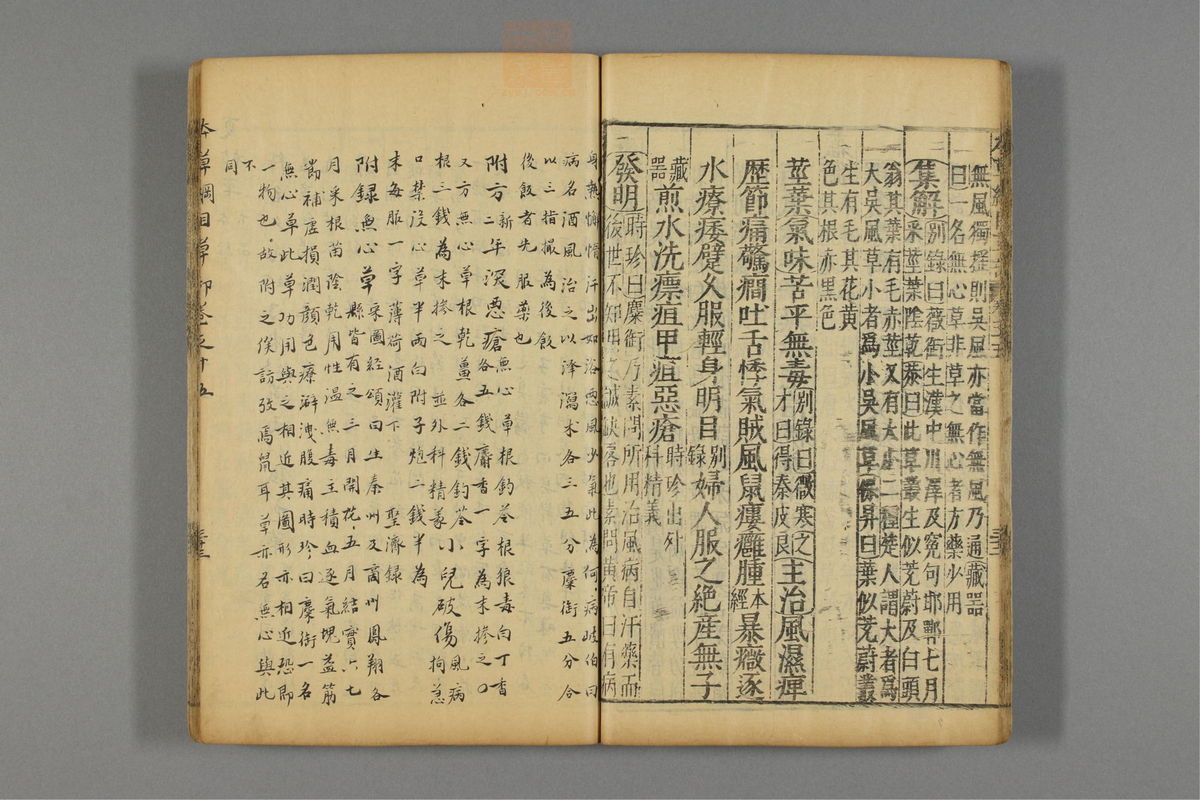 無風獨搖則吳風亦當作無風乃通藏器
曰一名無心草非草之無心者方藥少用
集解別錄曰薇銜生漢中川澤及冤句邯鄲七月
采莖葉陰乾恭曰此草叢生似茺蔚及白頭
翁其葉有毛赤莖又有大小二種楚人謂大者爲
大吳風草小者爲小吳風草保昇曰葉似茺蔚叢
生有毛其花黃
色其根赤黑色
莖葉氣味苦平無毒別錄曰微寒之
才曰得秦皮良主治風濕痺
歷節痛驚癇吐舌悸氣賊風鼠瘻癰腫本
經暴癥逐
水療痿躄久服輕身明目別
錄婦人服之絶産無子
藏
器煎水洗瘭疽甲疽惡瘡時珍出外
科精義
發明時珍曰麋銜乃素問所用治風病自汗藥而
後世不知用之誠缺畧也素問黃帝曰有病
身熱懈惰汗出如浴惡風少氣此為何病岐伯曰
病名酒風治之以澤瀉朮各三五分麋銜五分合
以三指撮為後飯
後飯者先服藥也
附方二新
年深惡瘡無心草根釣苓根狼毒白丁香
各五錢麝香一字為末摻之〇
又方無心草根乾薑各二錢釣苓
根三錢為末摻之並外科精義小兒破傷風病拘急
口禁沒心草半兩白附子炮二錢半為
末每服一字薄荷酒灌下聖濟錄
附錄無心草采圖經頌曰生秦州及商州鳳翔各
縣皆有之三月開花五月結實六七
月采根苗陰乾用性溫無毒主積血逐氣塊益筋
節補虛損潤顏色療澼洩腹痛時珍曰麋銜一名
無心草此草功用與之相近其圖形亦相近恐即
一物也故附之俟訪攷焉鼠耳草亦名無心與此
不
同
本草綱目草部卷之十五